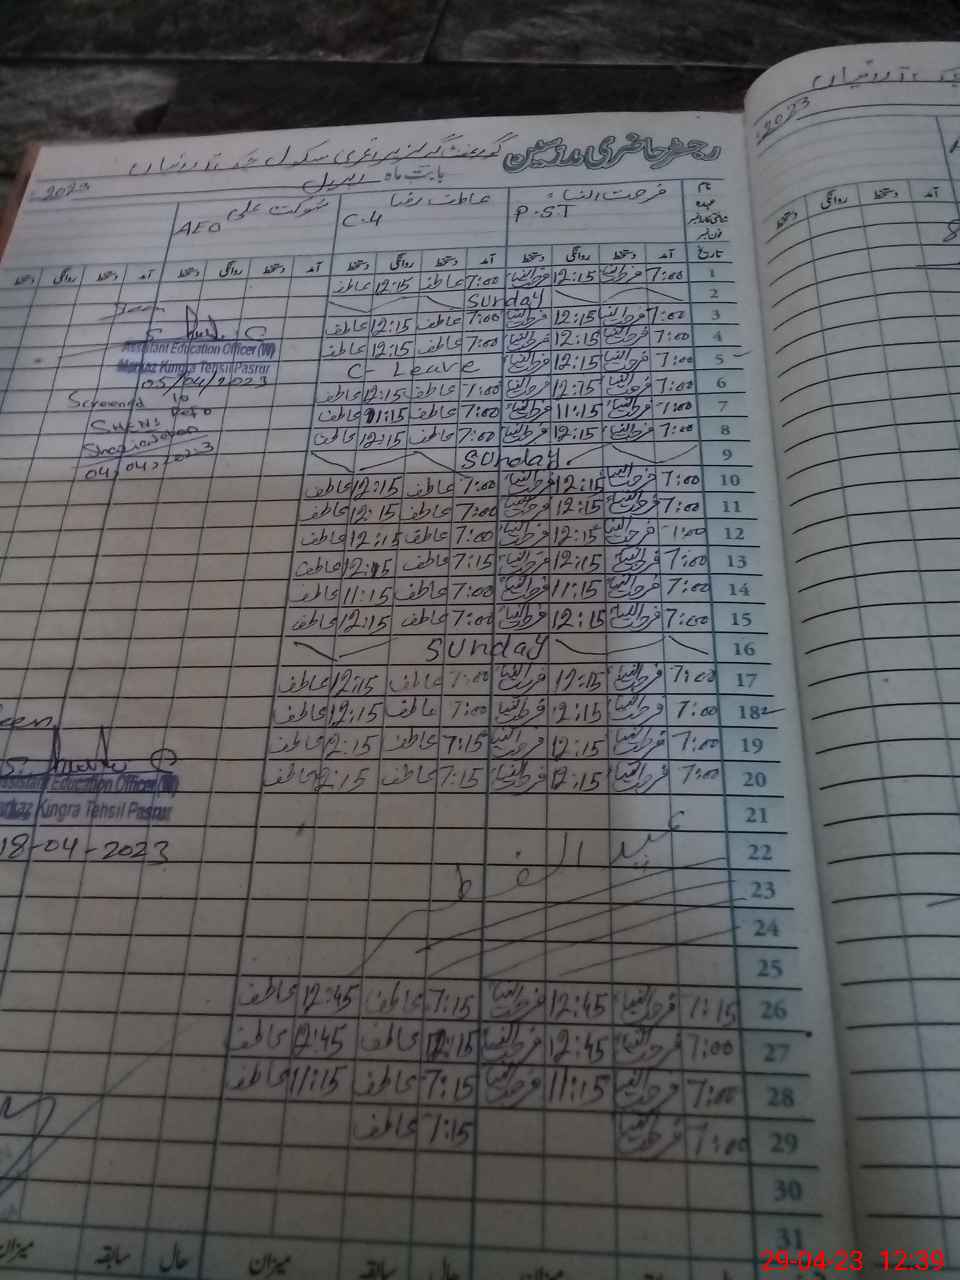 رجسٹر حاضری مدرسین گورنمنٹ گرلز پرائمری سکول
بابت ماہ اپریل 2023
نام فرحت النساء عاطف رضا شوکت علی
عہدہ P.S.T C-4 AEO
تاریخ آمد دستخط روانگی دستخط آمد دستخط روانگی دستخط آمد دستخط روانگی دستخط آمد دستخط روانگی دستخط
1 7:00 فرحت النساء 12:15 فرحت النساء 7:00 عاطف 12:15 عاطف
2 Sunday
3 7:00 فرحت النساء 12:15 فرحت النساء 7:00 عاطف 12:15 عاطف
4 7:00 فرحت النساء 12:15 فرحت النساء 7:00 عاطف 12:15 عاطف
5 7:00 فرحت النساء 12:15 فرحت النساء C- Leave
6 7:00 فرحت النساء 12:15 فرحت النساء 7:00 عاطف 12:15 عاطف
7 7:00 فرحت النساء 11:15 فرحت النساء 7:00 عاطف 11:15 عاطف
8 7:00 فرحت النساء 12:15 فرحت النساء 7:00 عاطف 12:15 عاطف
9 Sunday
10 7:00 فرحت النساء 12:15 فرحت النساء 7:00 عاطف 12:15 عاطف
11 7:00 فرحت النساء 12:15 فرحت النساء 7:00 عاطف 12:15 عاطف
12 7:00 فرحت النساء 12:15 فرحت النساء 7:00 عاطف 12:15 عاطف
13 7:00 فرحت النساء 12:15 فرحت النساء 7:15 عاطف 12:15 عاطف
14 7:00 فرحت النساء 11:15 فرحت النساء 7:00 عاطف 11:15 عاطف
15 7:00 فرحت النساء 12:15 فرحت النساء 7:00 عاطف 12:15 عاطف
16 Sunday
17 7:00 فرحت النساء 12:15 فرحت النساء 7:00 عاطف 12:15 عاطف
18 7:00 فرحت النساء 12:15 فرحت النساء 7:00 عاطف 12:15 عاطف
19 7:00 فرحت النساء 12:15 فرحت النساء 7:15 عاطف 12:15 عاطف
20 7:00 فرحت النساء 12:15 فرحت النساء 7:15 عاطف 12:15 عاطف
21
22 عید الفطر
23
24
25
26 7:15 فرحت النساء 12:45 فرحت النساء 7:15 عاطف 12:45 عاطف
27 7:00 فرحت النساء 12:45 فرحت النساء 7:15 عاطف 12:45 عاطف
28 7:00 فرحت النساء 11:15 فرحت النساء 7:15 عاطف 11:15 عاطف
29 7:00 فرحت النساء 7:15 عاطف
30
31
میزان حال سابقہ میزان
Assistant Education Officer (W)
Markaz Kingra Tehsil Pasrur
05/04/2023
04/04/2023
Assistant Education Officer (W)
Markaz Kingra Tehsil Pasrur
18-04-2023
2023
آمد دستخط روانگی دستخط
29-04-23 12:39